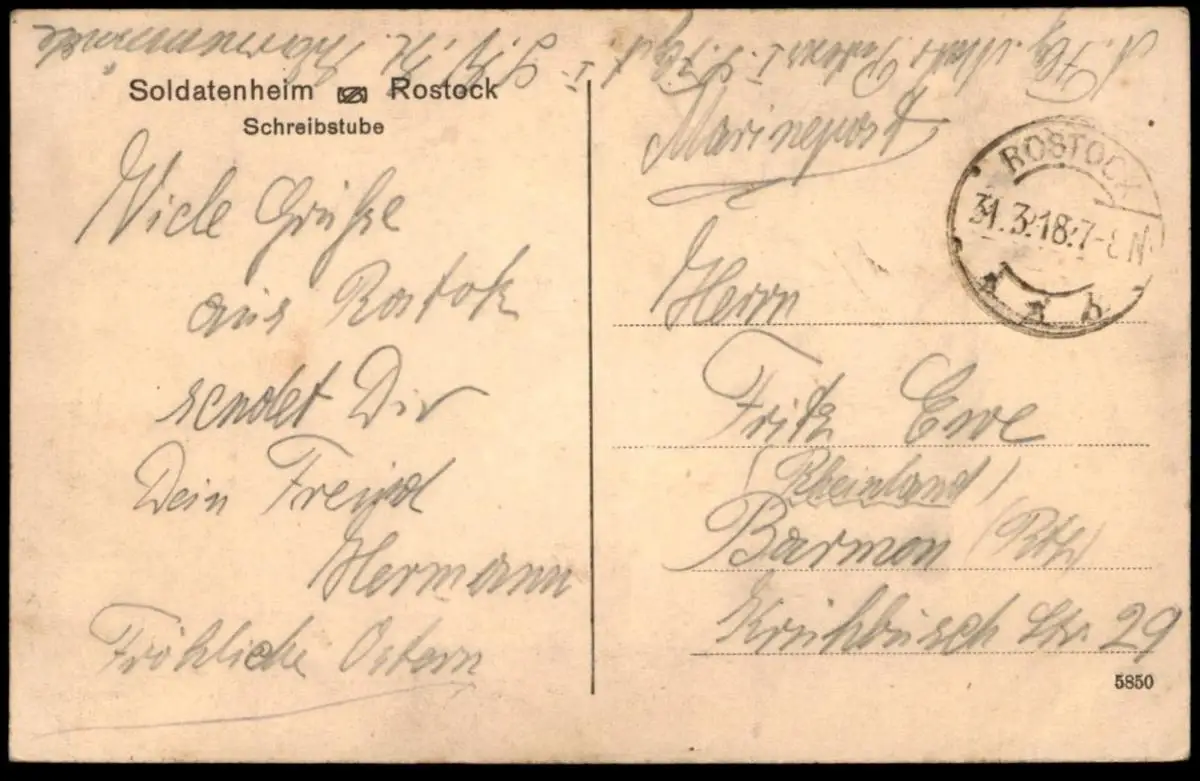 Soldatenheim Rostock
Schreibstube
Viele Grüße
aus Rostok
sendet Dir
Dein Freund
Hermann
Fröhliche Ostern
Marinepost
ROSTOCK
31.3.18.7-8N
Herrn
Fritz Erve
(Rheinland)
Barmen
Str. 29
5850